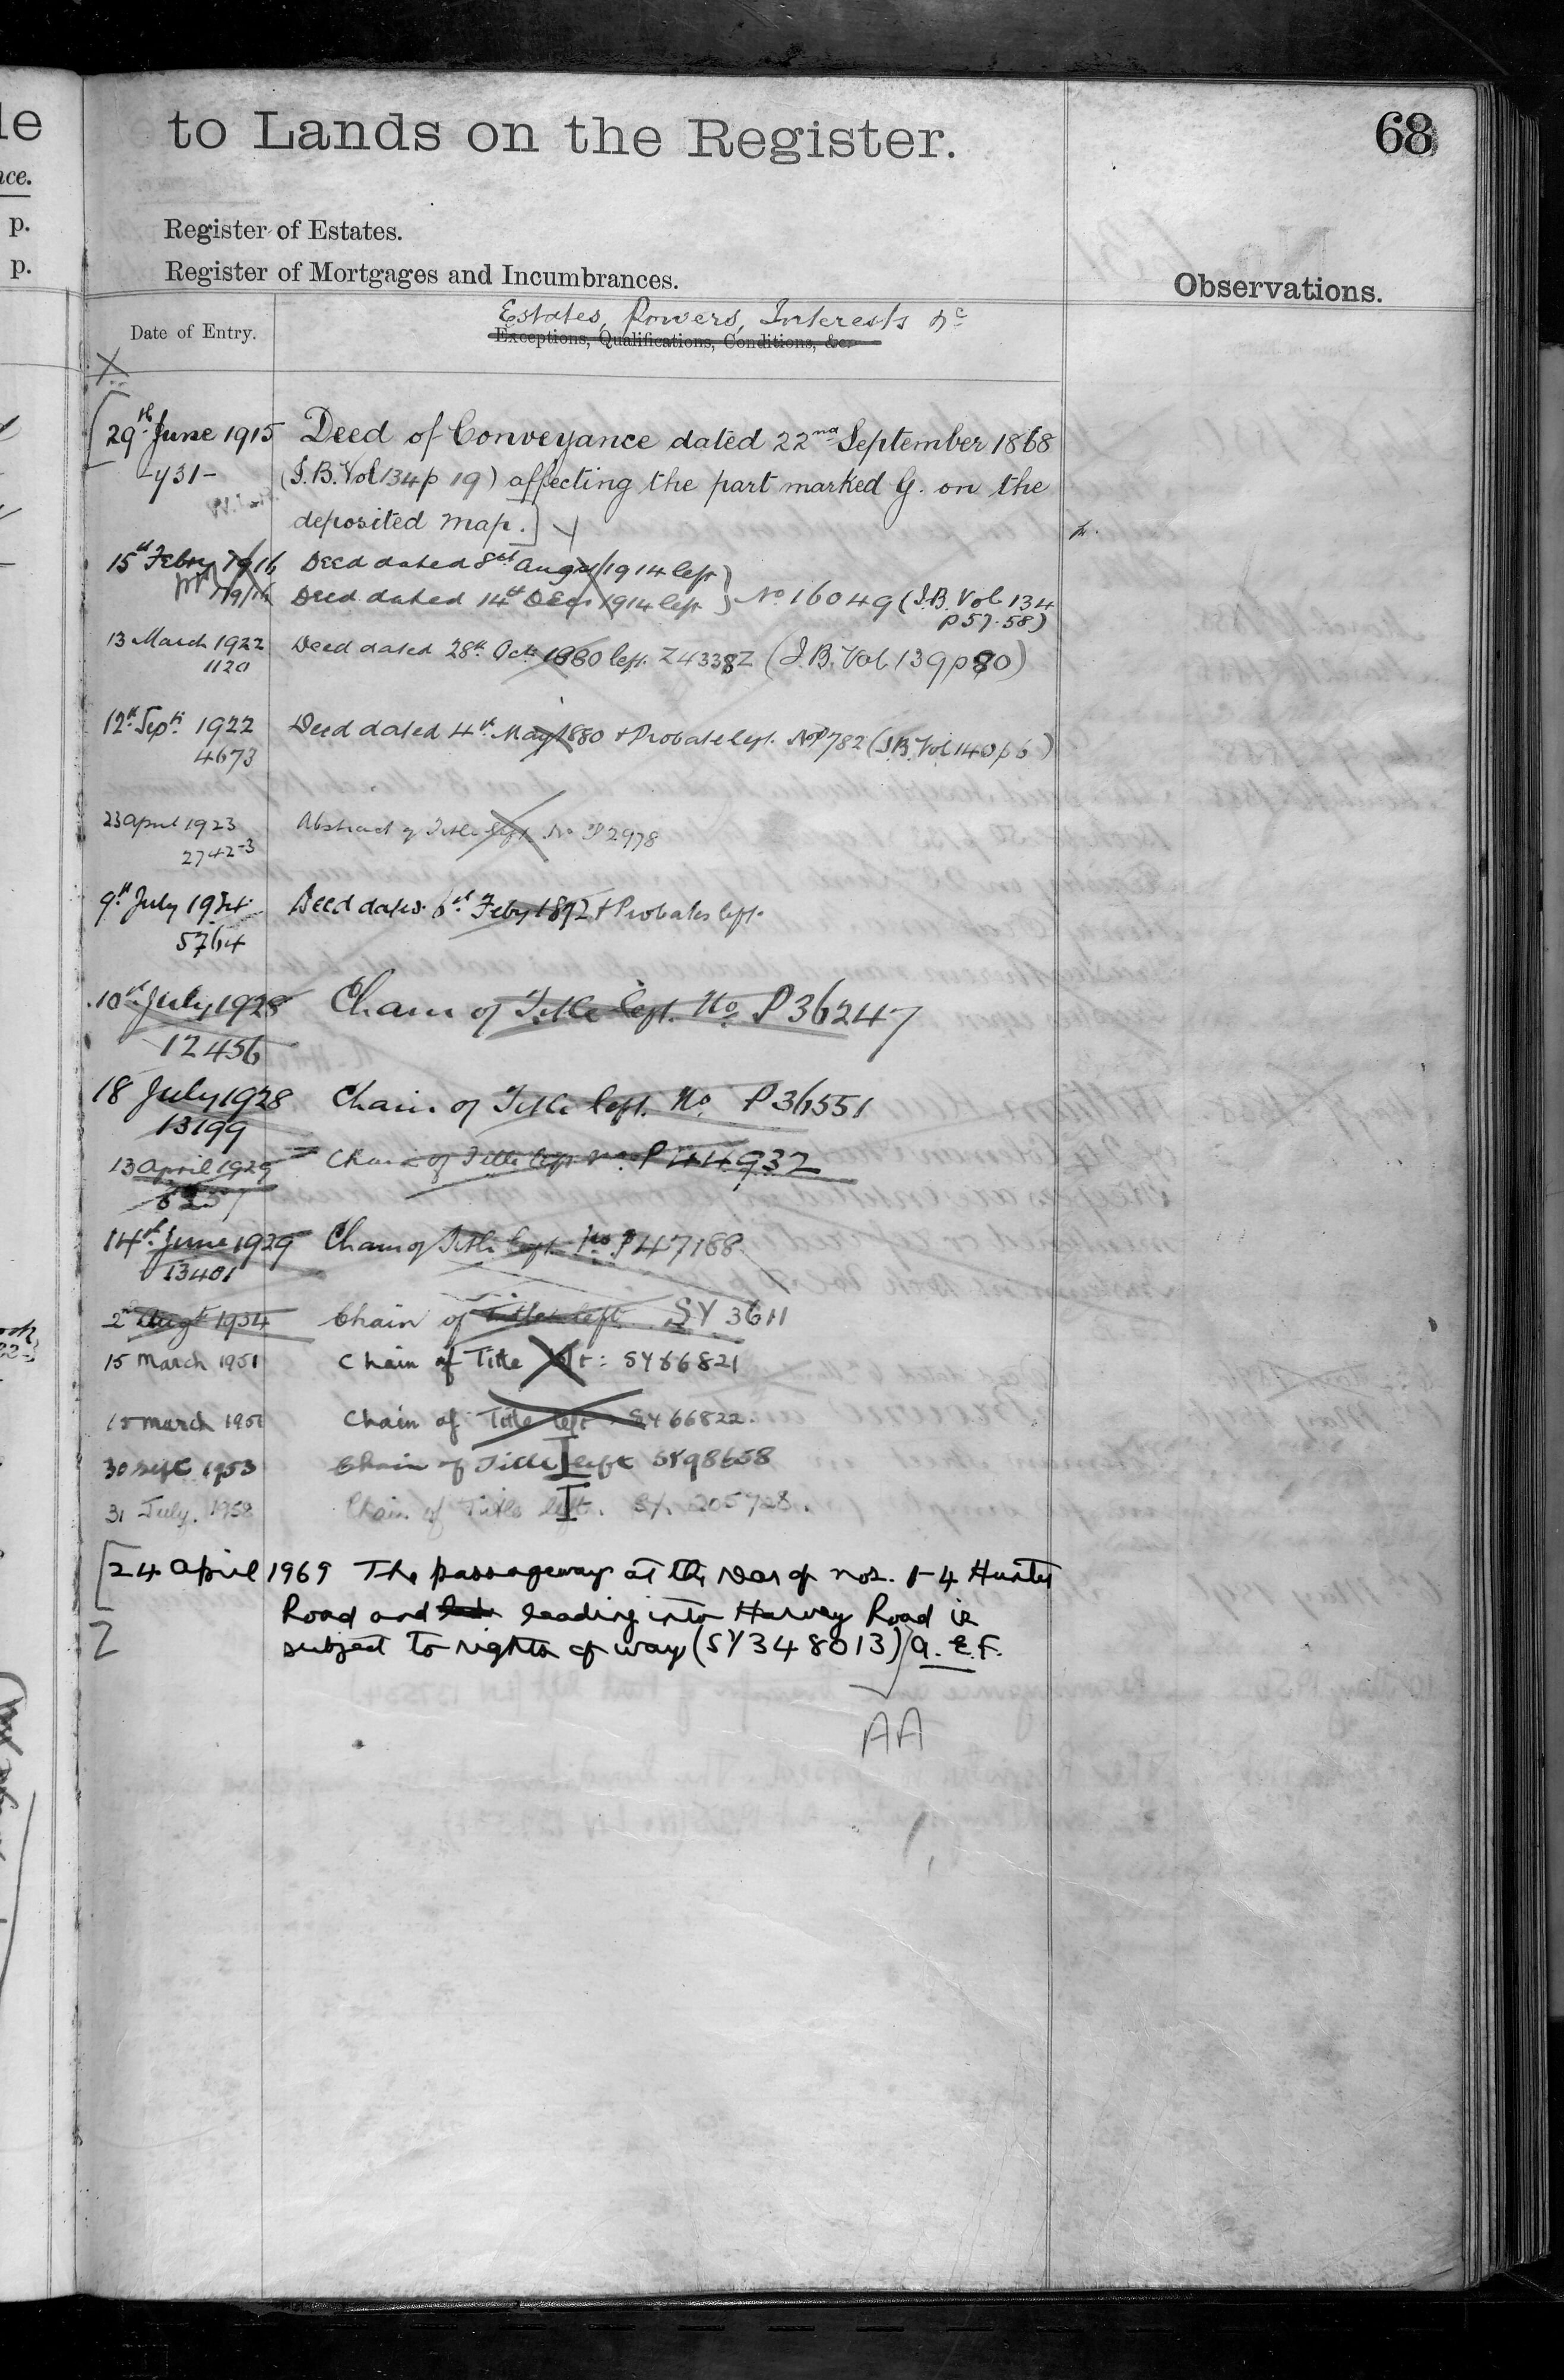 le
to Lands on the Register.
68
nce.
p.
Register of Estates.
p.
Register of Mortgages and Incumbrances.
Observations.
Estates, Powers, Interests &c
Date of Entry.
Exceptions, Qualifications, Conditions, &c.
29th June 1915 Deed of Conveyance dated 22nd September 1868
-431- (I.B. Vol 134 p 19) affecting the part marked G. on the
deposited map.
15th Febry 1916 Deed dated 8th August 1914 left
Deed dated 14th Decr 1914 left No 16049 (I.B. Vol 134
p 57. 58)
13 March 1922 Deed dated 28th Oct 1880 left. Z4338Z (I.B. Vol 139 p 80)
1120
12th Sept 1922 Deed dated 4th May 1880 + Probate left. No P782 (I.B. Vol 140 p 6)
4673
23 April 1923 Abstract of Title left No P2978
2742-3
9th July 1924 Deed dated 6th Feby 1892 + Probates left.
5764
10th July 1928 Chain of Title left. No. P36247
12456
18 July 1928 Chain of Title left. No. P36551
13199
13 April 1929 Chain of Title left No. P44932
14th June 1929 Chain of Title left No P47188
13401
2nd Augt 1934 Chain of Title left SY 3611
15 March 1951 Chain of Title left: SY66821
15 March 1951 Chain of Title left SY66822.
30 Sept 1953 Chain of Title left SY98658
31 July. 1958 Chain of Title left. SY. 205728.
24 April 1969 The passageway at the rear of nos. 1-4 Hunter
Road and leading into Harvey Road is
subject to rights of way (SY348013) A.E.F.
AA